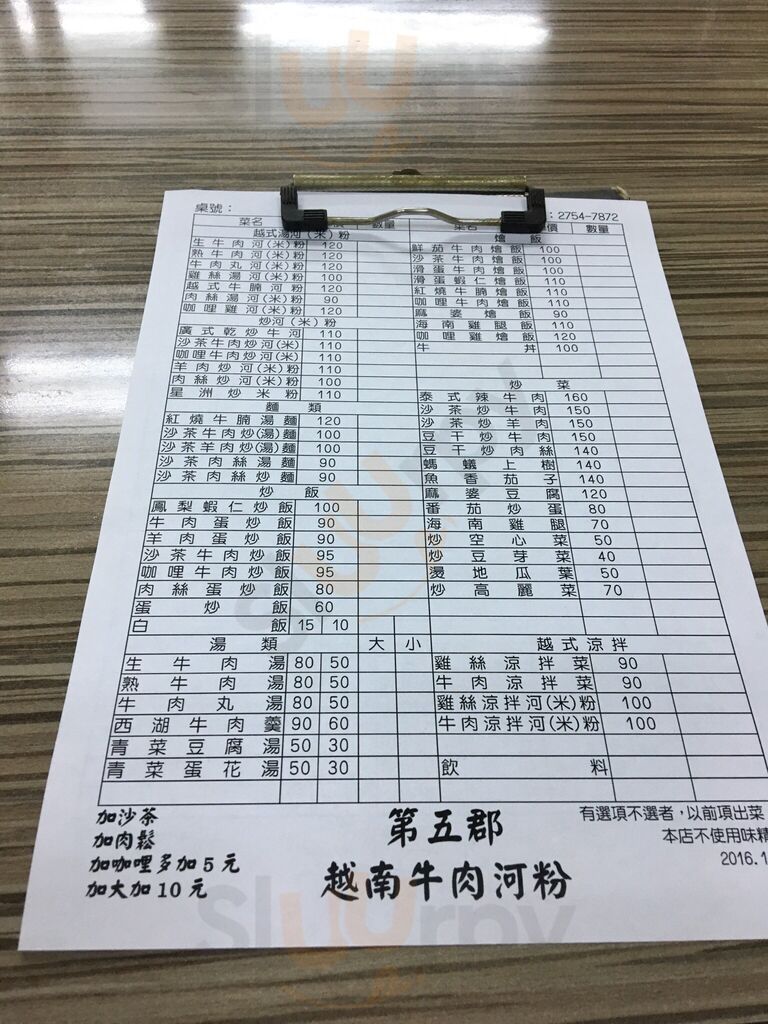 桌號：
：2754-7872
菜名 數量
越式湯河(米)粉
生牛肉河(米)粉 120
熟牛肉河(米)粉 120
牛肉丸河(米)粉 120
雞絲湯河(米)粉 100
越式牛腩河粉 120
肉絲湯河(米)粉 90
咖哩雞河(米)粉 120
炒河(米)粉
廣式乾炒牛河 110
沙茶牛肉炒河(米) 110
咖哩牛肉炒河(米) 110
羊肉炒河(米)粉 110
肉絲炒河(米)粉 100
星洲炒米粉 110
麵類
紅燒牛腩湯麵 120
沙茶牛肉炒(湯)麵 100
沙茶羊肉炒(湯)麵 100
沙茶肉絲湯麵 90
沙茶肉絲炒麵 90
炒飯
鳳梨蝦仁炒飯 100
牛肉蛋炒飯 90
羊肉蛋炒飯 90
沙茶牛肉炒飯 95
咖哩牛肉炒飯 95
肉絲蛋炒飯 80
蛋炒飯 60
白飯 15 10
湯類 大 小
生牛肉湯 80 50
熟牛肉湯 80 50
牛肉丸湯 80 50
西湖牛肉羹 90 60
青菜豆腐湯 50 30
青菜蛋花湯 50 30
菜名 價 數量
燴飯
鮮茄牛肉燴飯 100
沙茶牛肉燴飯 100
滑蛋牛肉燴飯 100
滑蛋蝦仁燴飯 110
紅燒牛腩燴飯 110
咖哩牛肉燴飯 110
麻婆燴飯 90
海南雞腿飯 110
咖哩雞燴飯 120
牛丼 100
炒菜
泰式辣牛肉 160
沙茶炒牛肉 150
沙茶炒羊肉 150
豆干炒牛肉 150
豆干炒肉絲 140
螞蟻上樹 140
魚香茄子 140
麻婆豆腐 120
番茄炒蛋 80
海南雞腿 70
炒空心菜 50
炒豆芽菜 40
燙地瓜葉 50
炒高麗菜 70
越式涼拌
雞絲涼拌菜 90
牛肉涼拌菜 90
雞絲涼拌河(米)粉 100
牛肉涼拌河(米)粉 100
飲料
加沙茶
加肉鬆
加咖哩多加5元
加大加10元
第五郡
越南牛肉河粉
有選項不選者，以前項出菜
本店不使用味精
2016.1
slurpy
slurpy
slurpy